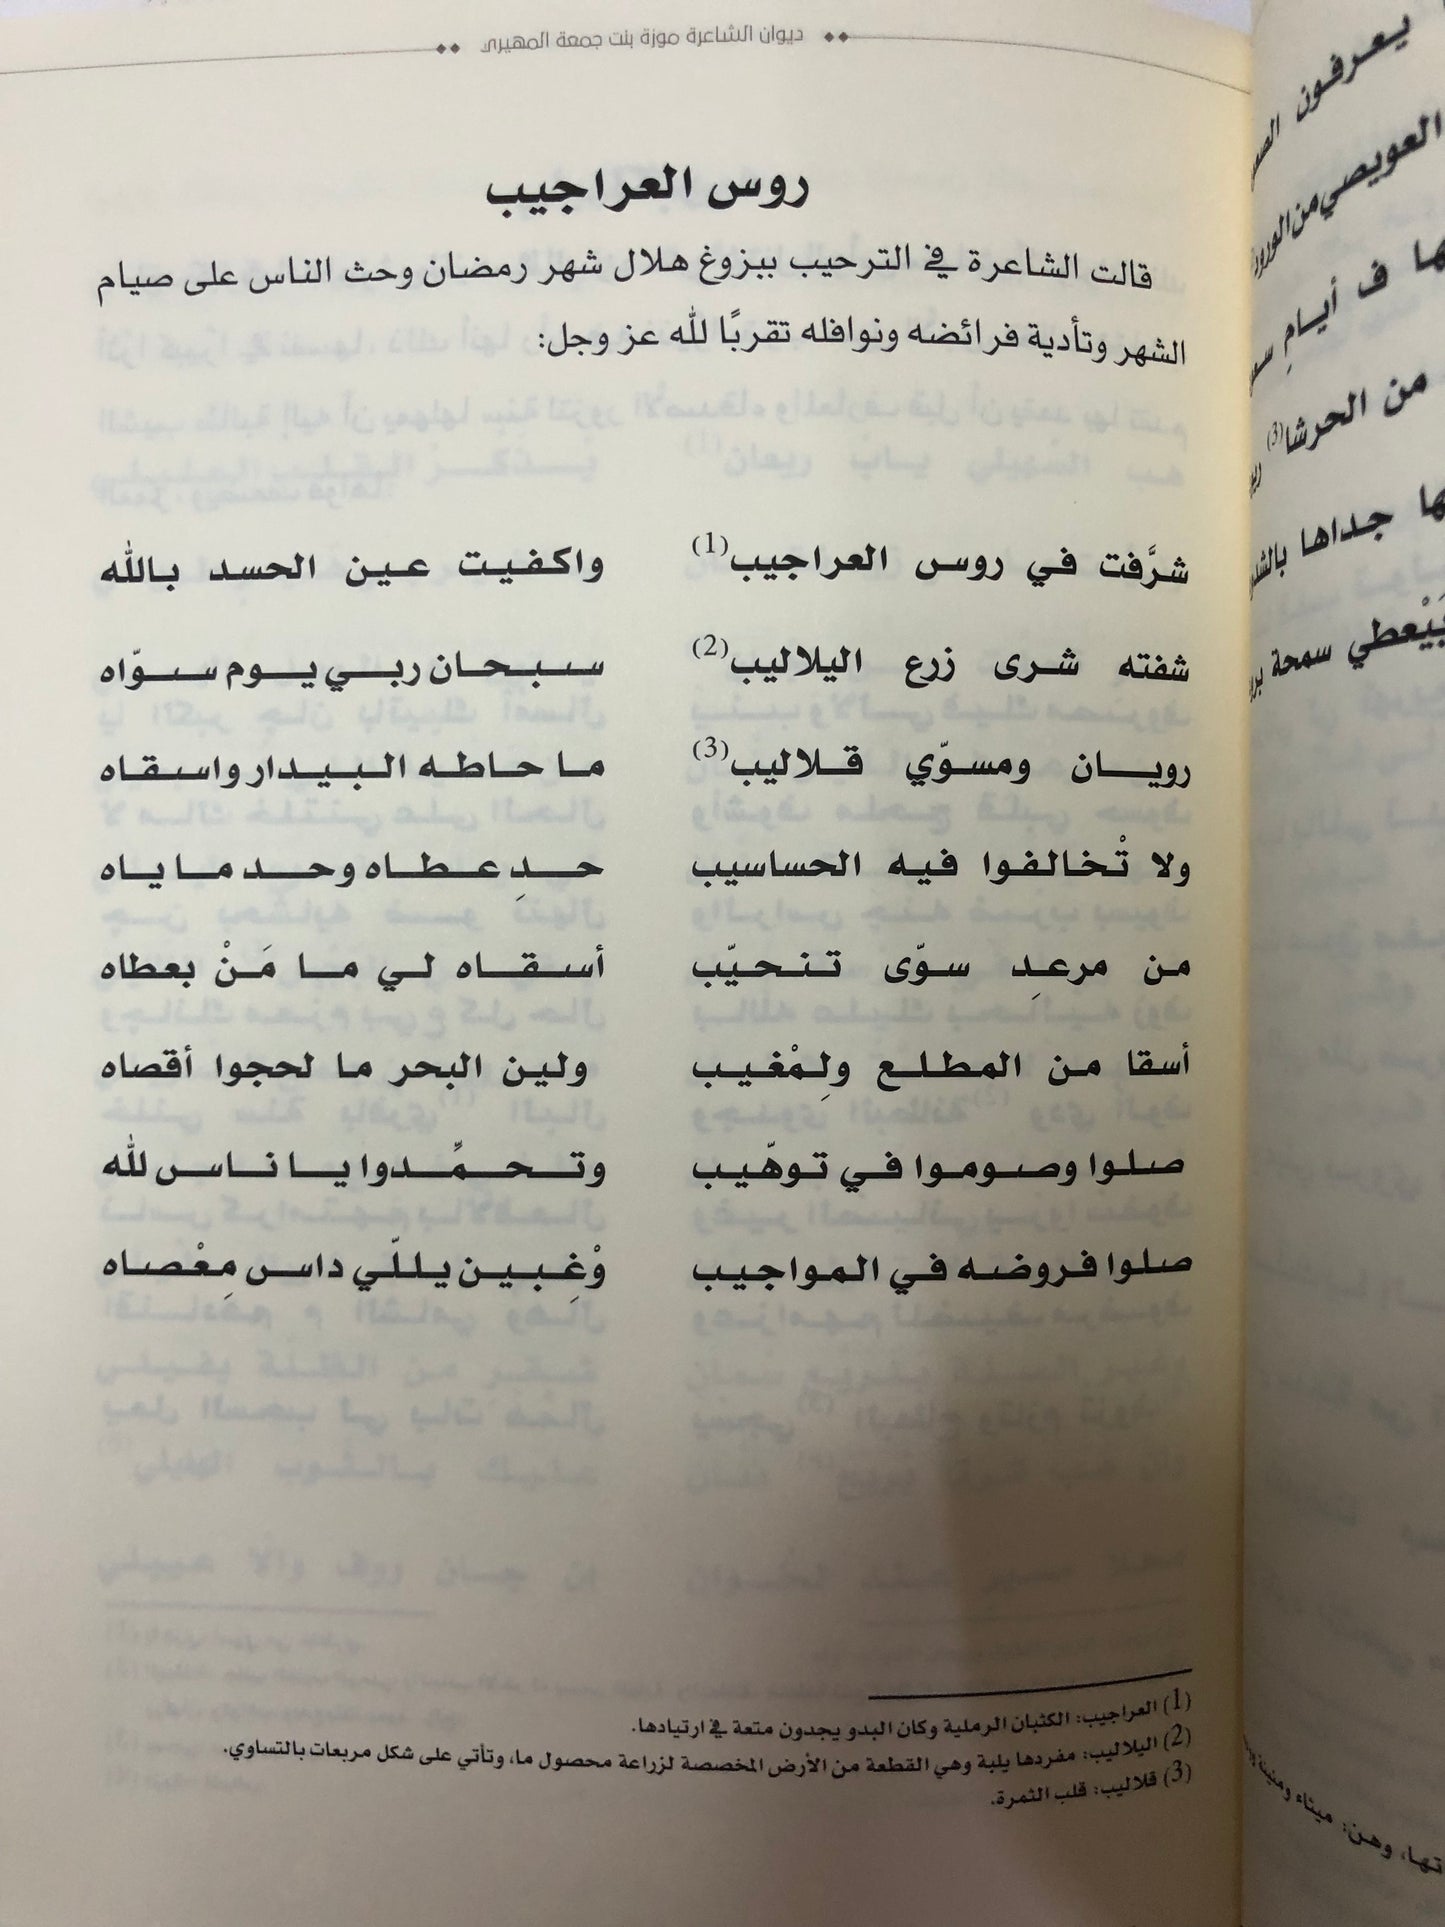 ديوان الشاعرة موزة بنت جمعة المهيري
روس العراجيب
قالت الشاعرة في الترحيب ببزوغ هلال شهر رمضان وحث الناس على صيام
الشهر وتأدية فرائضه ونوافله تقربًا لله عز وجل:
شرَّفت في روس العراجيب(1) واكفيت عين الحسد بالله
شفته شرى زرع اليلاليب(2) سبحان ربي يوم سوّاه
رويان ومسوّي قلاليب(3) ما حاطه البيدار واسقاه
ولا تْخالفوا فيه الحساسيب حدِ عطاه وحد ما ياه
من مرعدِ سوّى تنحيّب أسقاه لي ما مَنْ بعطاه
أسقا من المطلع ولِمْغيب ولين البحر ما لحجوا أقصاه
صلوا وصوموا في توهّيب وتحمِّدوا يا ناس لله
صلوا فروضه في المواجيب وْغِبين يللّي داس مِعْصاه
(1) العراجيب: الكثبان الرملية وكان البدو يجدون متعة في ارتيادها.
(2) اليلاليب: مفردها يلبة وهي القطعة من الأرض المخصصة لزراعة محصول ما، وتأتي على شكل مربعات بالتساوي.
(3) قلاليب: قلب الثمرة.
يعرفون
العويصي من الورود
ها ف أيامِ
من الحرشا(3)
ها جداها
بَيْعطي سمحة
تها، وهن: ميثاء ومنينة